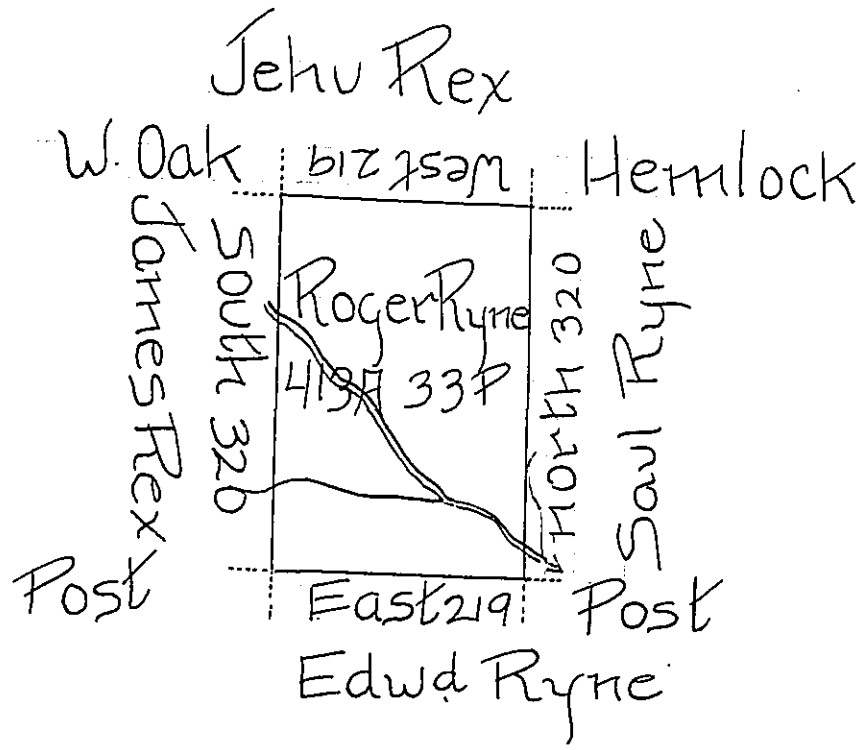 Jehu Rex
W. Oak
West 219
Hemlock
James Rex
South 320
Roger Ryne
413A 33P
North 320
Saul Ryne
Post
East 219
Post
Edwd Ryne